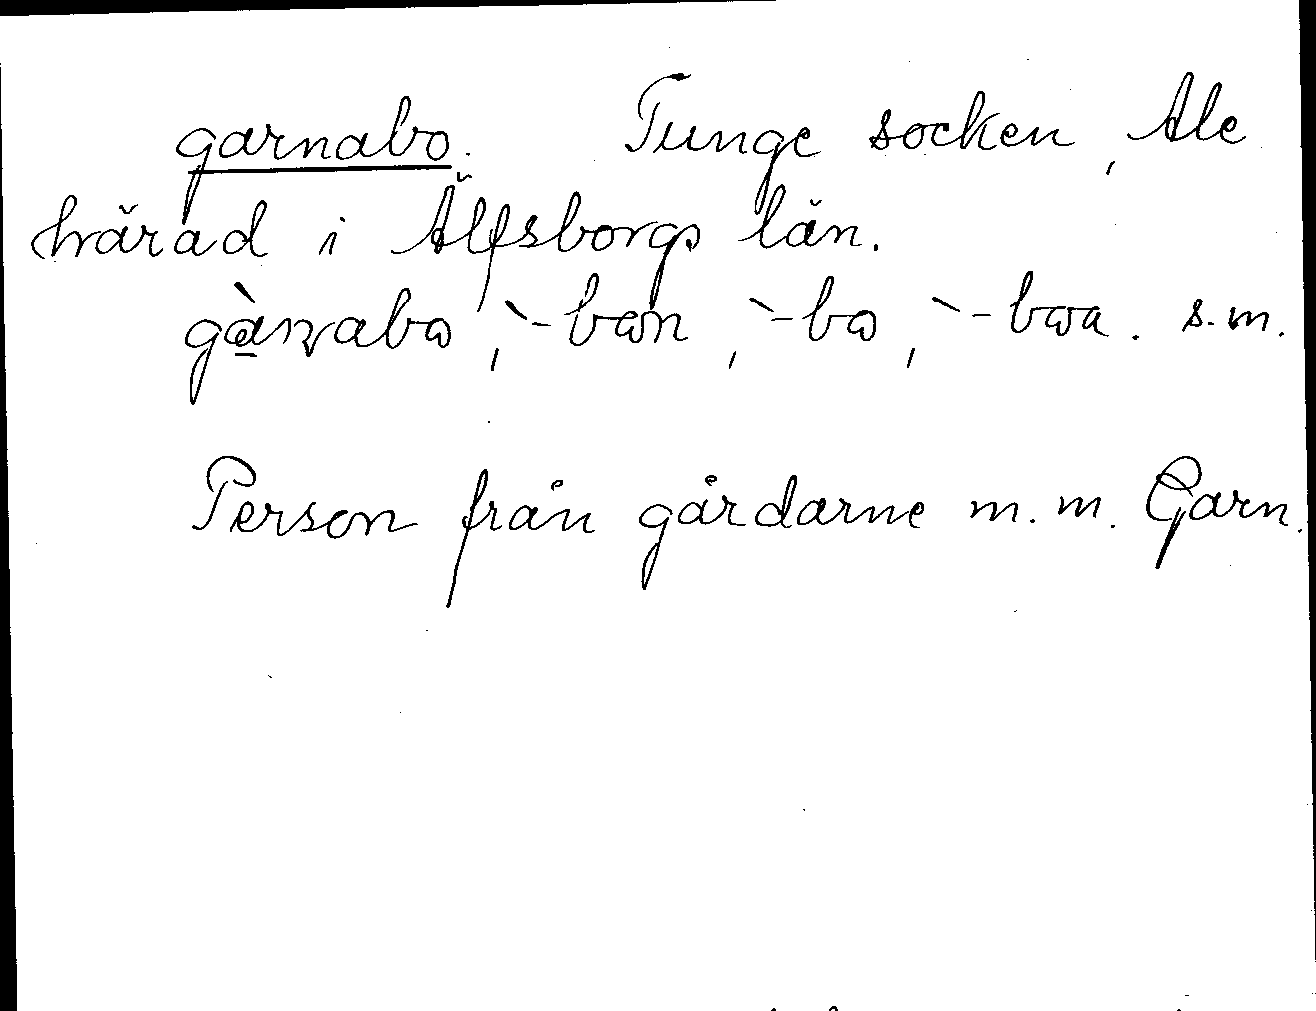 garnabo. Tunge socken, Ale
härad i Älfsborgs län.
gàɳabω, `-bωn, `-bω, `-bωa. s.m.
Person från gårdarne m.m. Garn.